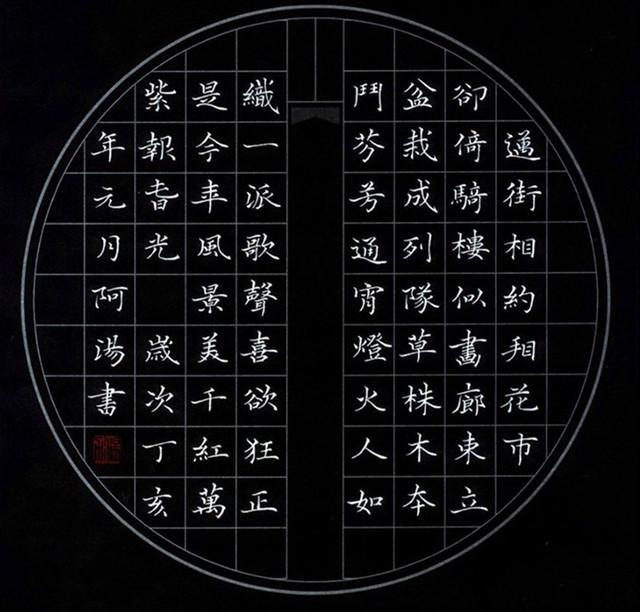 邁街相約看花市
卻倚騎樓似畫廊東立
盆栽成列隊草株木本
鬥芬芳通宵燈火人如
織一派歌聲喜欲狂正
是今年風景美千紅萬
紫報旾光 歲次丁亥
年元月阿湯書